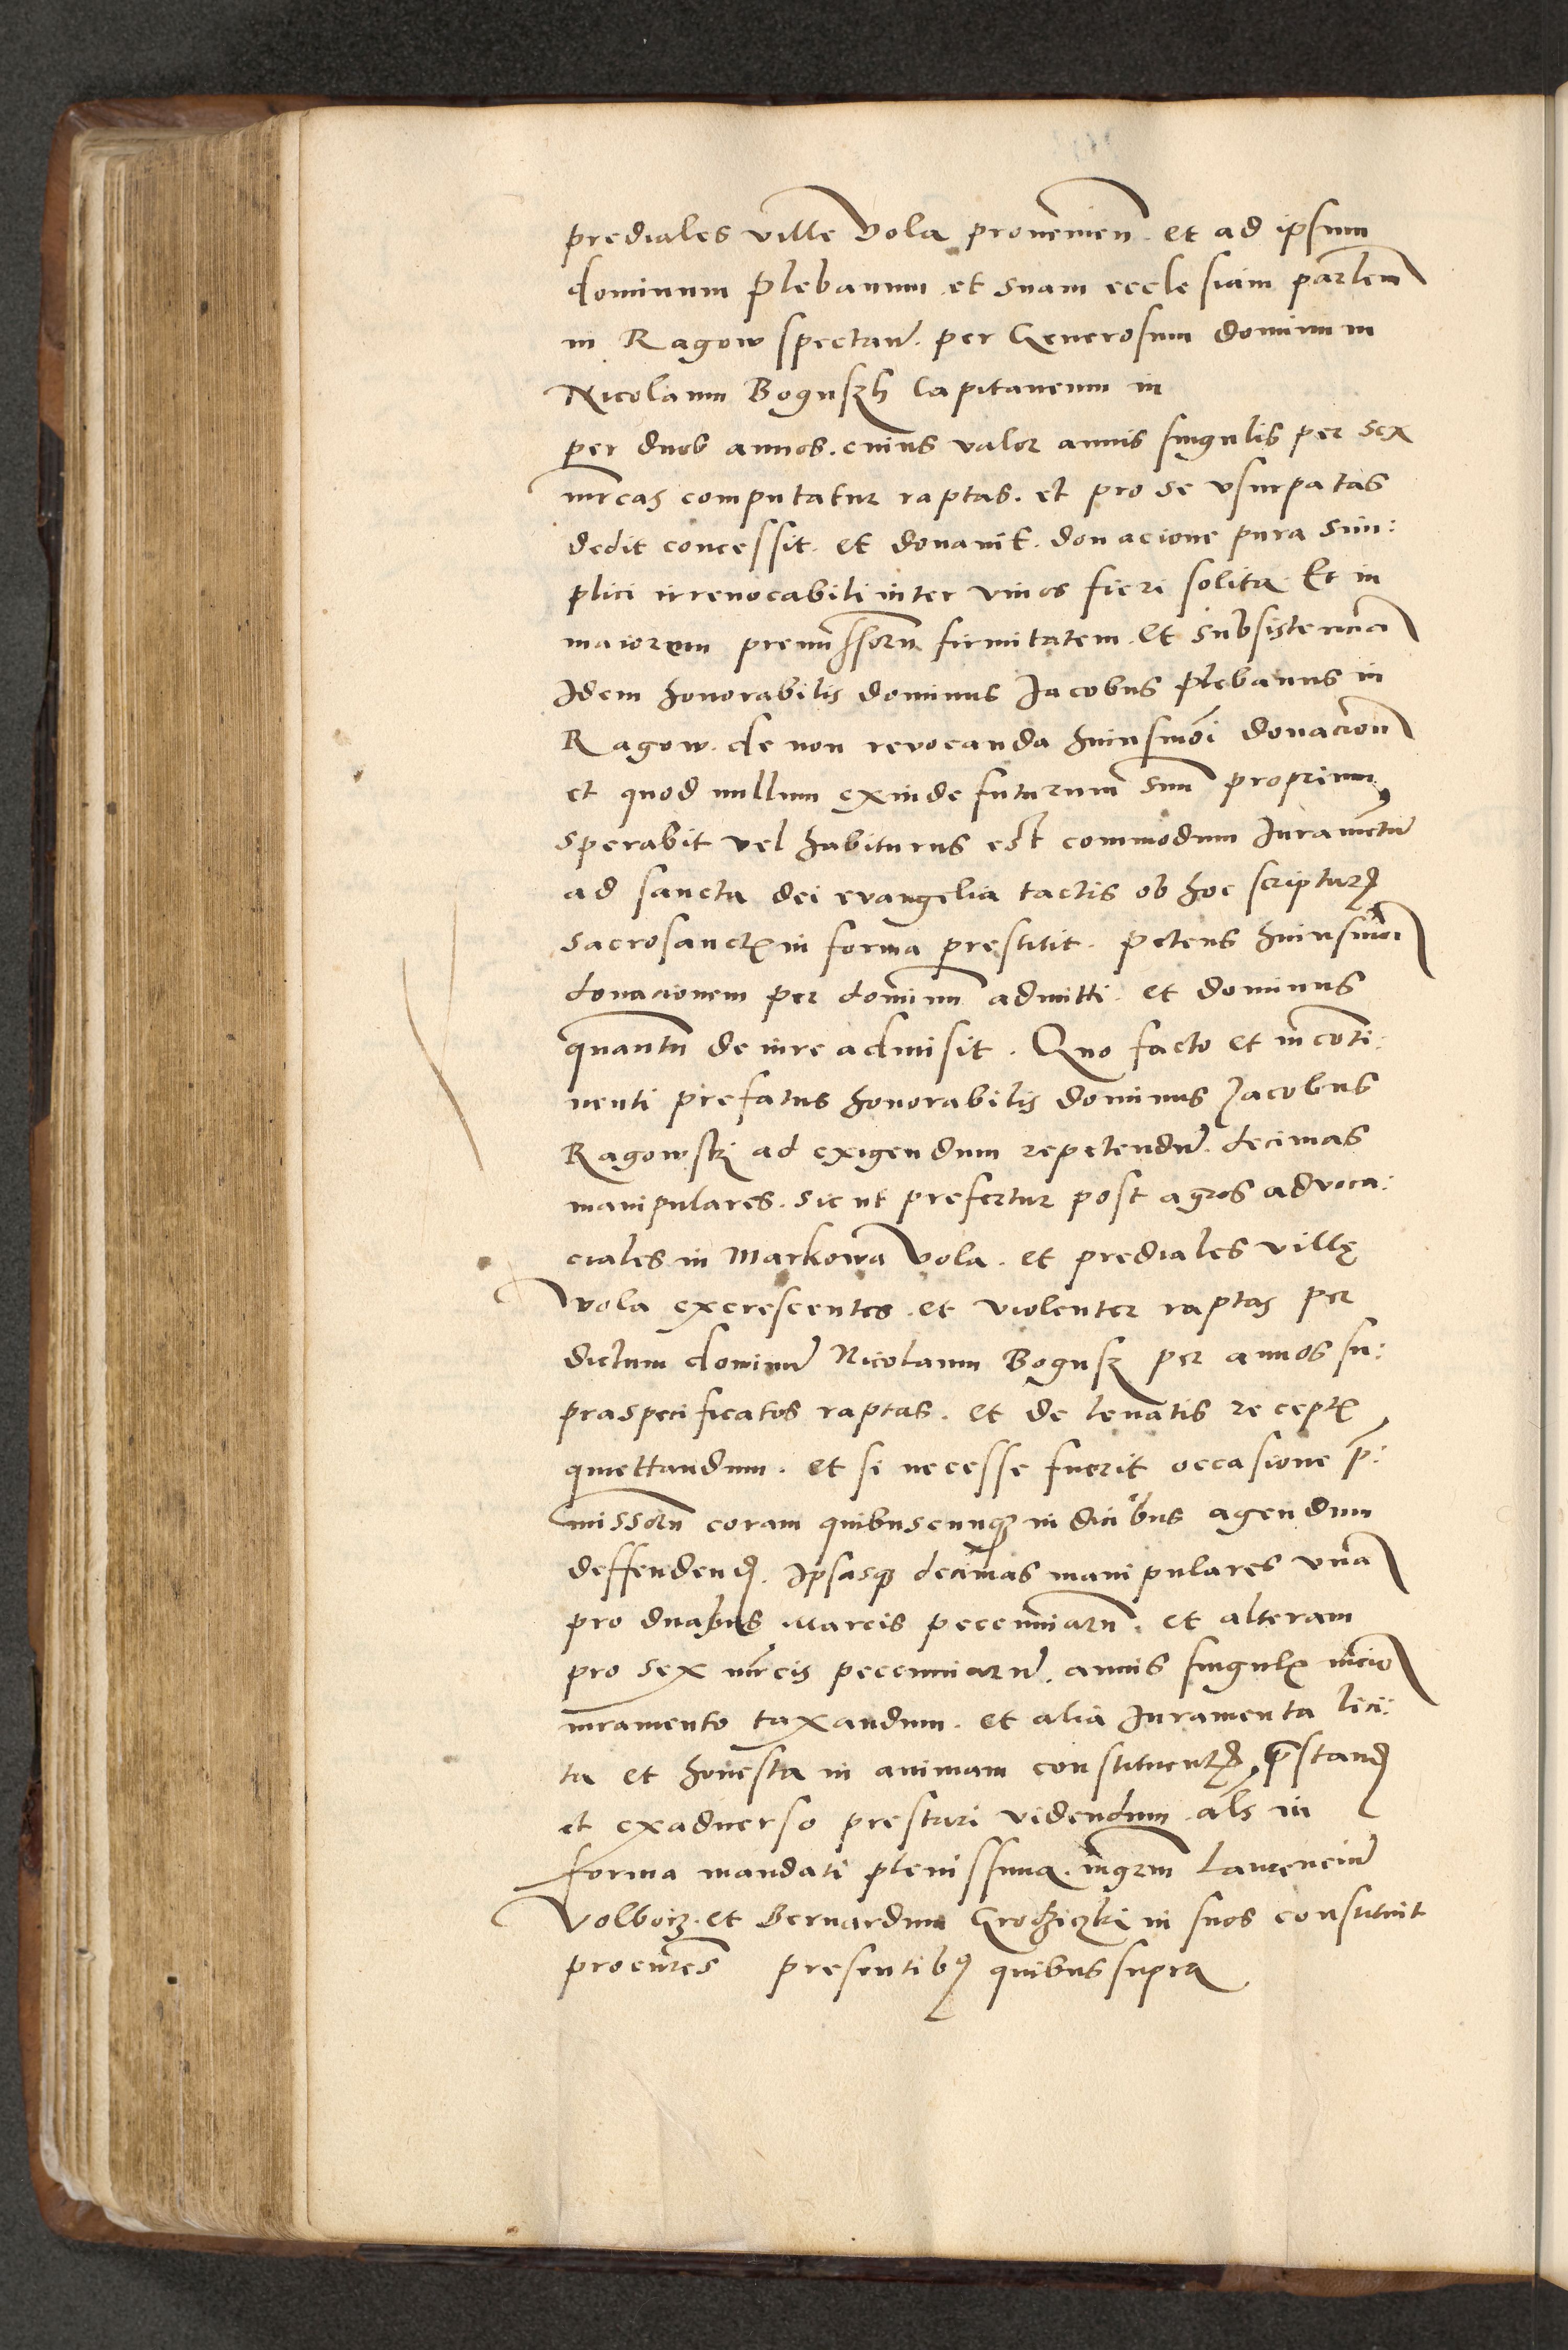 prediales ville Vola provenien̄. et ad ipsum
dominum plebanum et suam ecclesiam parlem
in Ragow spectan̄. per Generosum dominum
Nicolaum Boguszh Capitaneum in
per duos annos. cuius valor annis singulis per sex
mrcas computatur raptas. et pro se vsurpatas
dedit concessit. et donavit. donacione pura sim:
plici irrevocabili inter vivos fieri solita. Et in
maiorem premissorū firmitatem et subsistenciā
Idem honorabilis dominus Jacobus plebanus in
Ragow. de non revocanda huiusmōi donacionē
et quod nullum exinde futurum suū proprium
sperabit vel habiturus est commodum Iuramētū
ad sancta dei evangelia tactis ob hoc scripturꝭ
sacrosanctꝭ in forma prestitit. petens huiusmōi
donacionem per dominū admitti. et dominus
quantū de iure admisit. Quo facto et in conti:
nenti prefatus honorabilis dominus Jacobus
Ragowskj ad exigendum repetendū. decimas
manipulares. sicut prefertur post agros advoca:
ciales in Markowa Vola. et prediales villę
Vola excrescentes. et violenter raptas per
dictum dominū Nicolaum Bogusz per annos su:
praspecificatos raptas. et de levatis receptꝭ
quiettandum. et si necesse fuerit occasione p̄:
missorū coram quibuscunqꝫ iudicibus agendum
deffendendꝭ. Ipsasqꝫ decimas manipulares vnā
pro duabus Marcis peccuniarū. et alteram
pro sex mrcis peccuniarū. annis singulꝭ medio
iuramento taxandum. et alia Iuramenta lici:
ta et honesta in animam constituentꝭ p̄standꝭ
et exadverso prestari videndum. als in
forma mandati plenissima. mgrm̄ Laurenciū
Volborz. et Bernardum Grodziczki in suos constituit
procūres presentibꝰ quibus supra